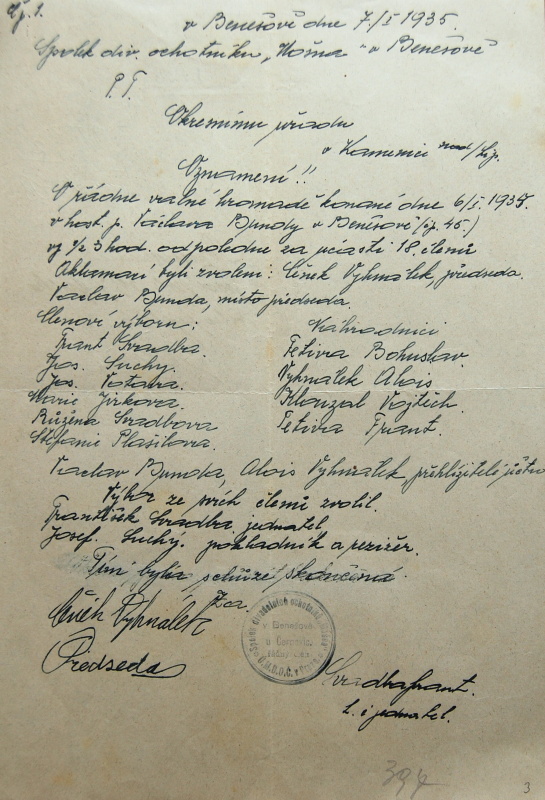 Čj. 1.
v Benešově dne 7./I 1935.
Spolek div. ochotníku „Hóšna“ v Benešově
P.T.
Okresnímu úřadu
v Kamenici nad/Lip.
Oznamení!!
O řádne valné hromadě konané dne 6/I. 1935.
v host. p. Václava Bundy v Benešově (čp. 45.)
v 1/2 3 hod. odpoledne za učasti 18. členů
Aklamací byli zvoleni: Čeněk Vyhnálek, předseda.
Vaclav Bunda, místo předseda.
Clenové výboru:
Frant Svadba.
Jos. Suchý.
Jos. Votava.
Marie Jirkova.
Růžena Svadbova
Stefanie Plašilova
Náhradnici
Fetivra Bohuslav
Vyhnalek Alois
Klouzal Vojtěch.
Fetivra Frant.
Vaclav Bunda, Alois Vyhnalek přehlížitelé účtu
Vybor ze svých členů zvolil.
František Svadba jednatel
Josef. Suchý. pokladník a režizér.
Tim byla schůze skončená.
Za.
Čeněk Vyhnálek
Předseda
v Benešově
Svadba Frant.
t. č jednatel.
394
3